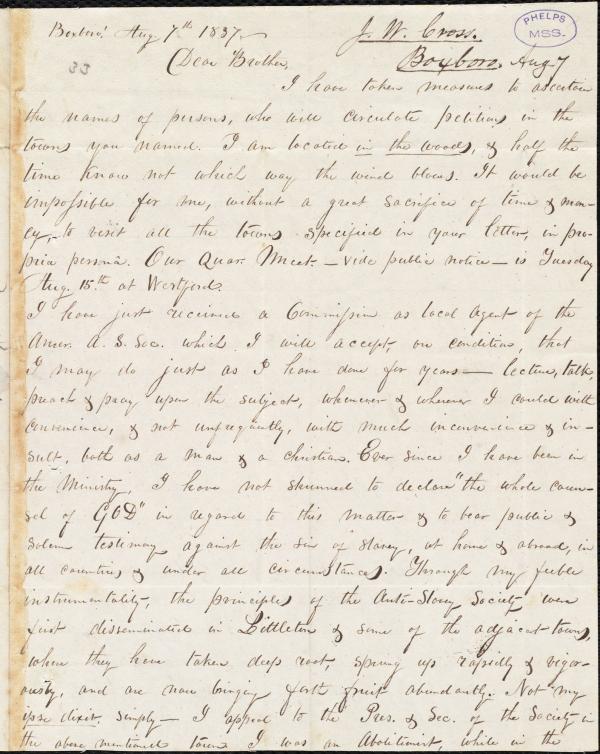 Boxboro' Aug 7th 1837.
J. W. Cross.
PHELPS
MSS.
33
Boxboro. Aug 7
Dear Brother,
I have taken measures to ascertain
the names of persons, who will circulate petitions in the
towns you named. I am located in the woods, & half the
time know not which way the wind blows. It would be
impossible for me, without a great sacrifice of time & mon-
ey, to visit all the towns specified in your letter, in pro-
pria persona. Our Quar. Meet. - vide public notice - is Tuesday
Aug. 15th at Westford.
I have just received a Commission as local Agent of the
Amer. A. S. Soc. which I will accept, on condition, that
I may do just as I have done for years - lecture, talk,
preach & pray upon the subject, whenever & wherever I could with
convenience, & not unfrequently, with much inconvenience & in-
sult, both as a man & a christian. Ever since I have been in
the Ministry, I have not shunned to declare "the whole coun-
sel of GOD" in regard to this matter & to bear public &
solemn testimony against the sin of slavery, at home & abroad, in
all countries & under all circumstances. Through my feeble
instrumentality, the principles of the Anti-Slavery Society were
first disseminated in Littleton & some of the adjacent towns,
where they have taken deep root, sprung up rapidly & vigor-
ously, and are now bringing forth fruit abundantly. Not my
ipse dixit, simply - I appeal to the Pres. & Sec. of the Society in
the above mentioned town I was an Abolitionist, while in the